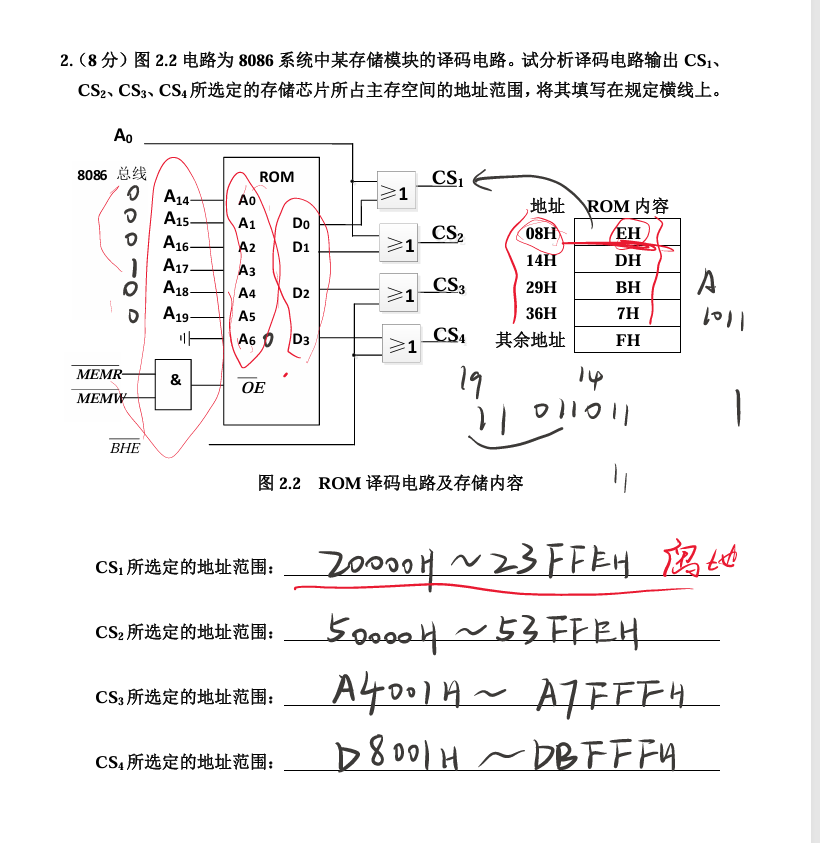 2.（8 分）图 2.2 电路为 8086 系统中某存储模块的译码电路。试分析译码电路输出 CS₁、
CS₂、CS₃、CS₄ 所选定的存储芯片所占主存空间的地址范围，将其填写在规定横线上。
A₀
8086 总线
ROM
≥1
CS₁
0 A₁₄ A0
0 A₁₅ A1 D0
0 A₁₆ A2 D1
1 A₁₇ A3
0 A₁₈ A4 D2
0 A₁₉ A5
A6 0 D3
≥1
CS₂
≥1
CS₃
≥1
CS₄
MEMR
MEMW
&
OE
BHE
地址 ROM 内容
08H EH
14H DH
29H BH
36H 7H
其余地址 FH
A
1011
19 14
11 011011
1
11
图 2.2 ROM 译码电路及存储内容
CS₁ 所选定的地址范围： 20000H ～ 23FFEH 偶地
CS₂ 所选定的地址范围： 50000H ～ 53FFEH
CS₃ 所选定的地址范围： A4001H ～ A7FFFH
CS₄ 所选定的地址范围： D8001H ～ DBFFFH